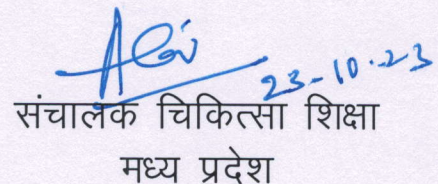 23-10-23
संचालक चिकित्सा शिक्षा
मध्य प्रदेश